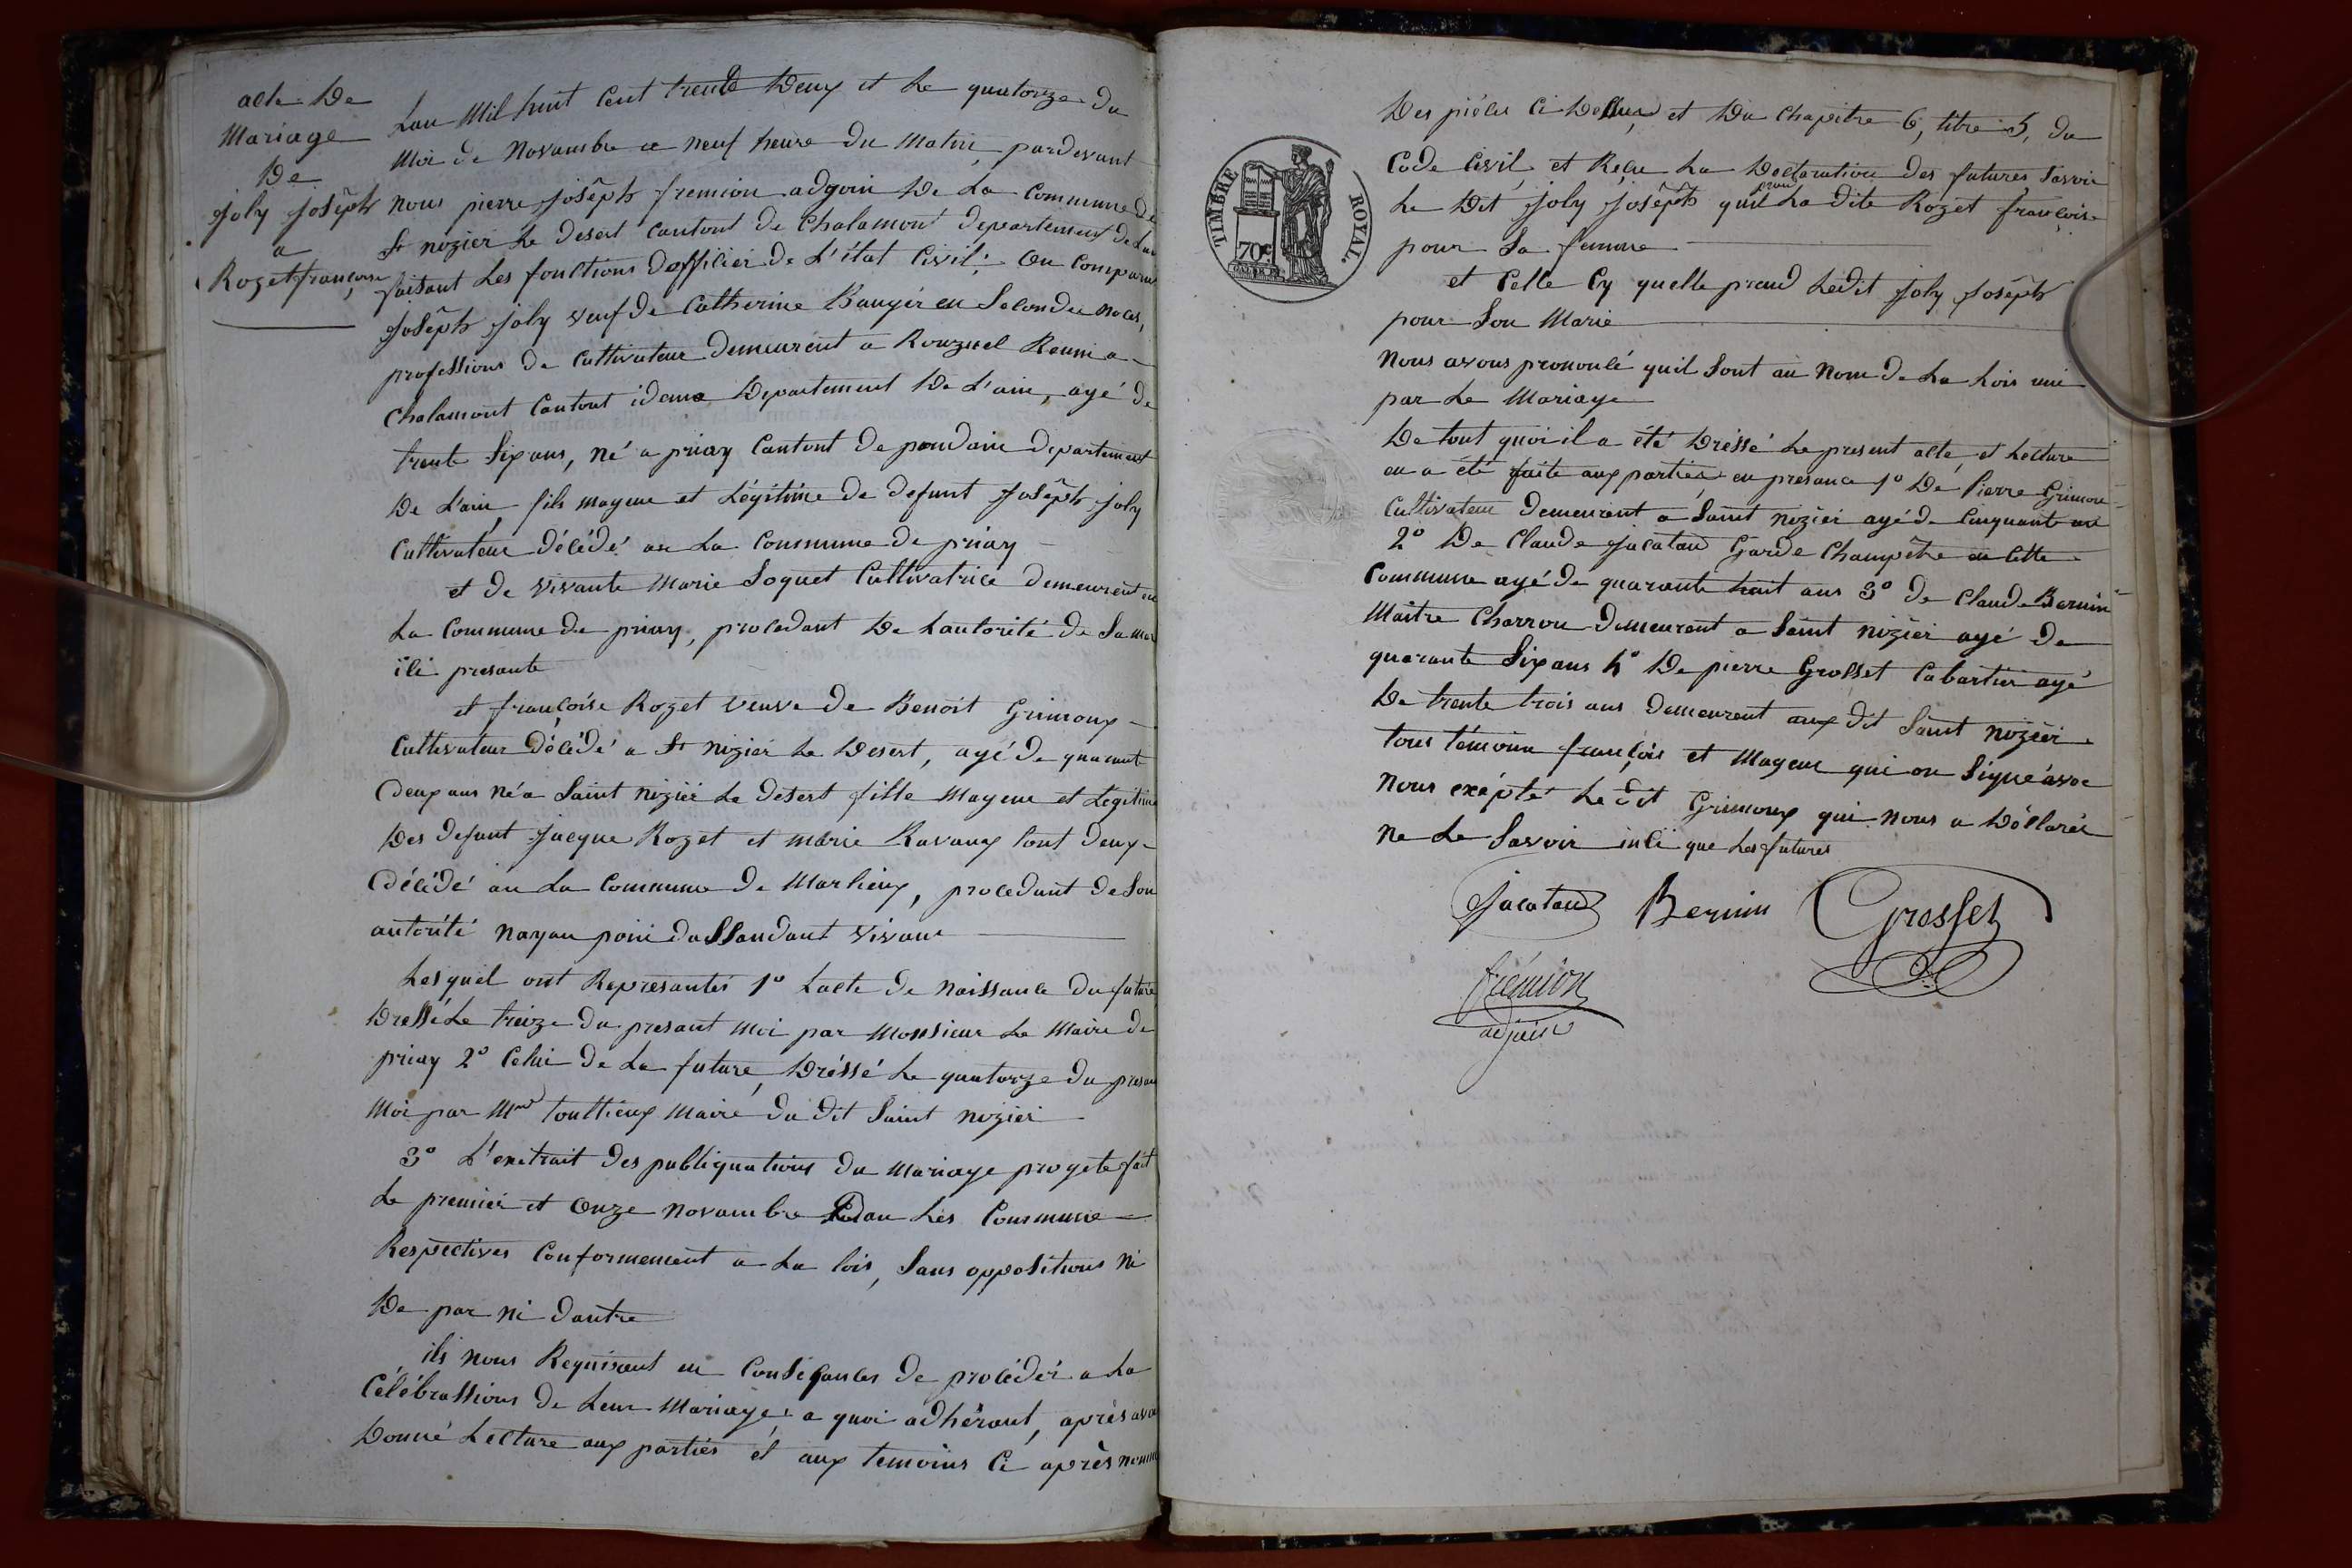 acte De
Mariage
De
joly joseph
a
Rozet françoise
Lan Mil huit Cent trente Deux et Le quatorze du
Moi de Novambre a neuf heure du Matin, pardevant
nous pierre joseph fremion adgoin De La Commune de
St nizier Le desert cantont de Chalamont departement de
faisant Les fonctions dofficier De L'état Civil; On Comparu
joseph joly veuf de Catherine Baugér en Seconde noces,
professions de Cultivateur Demeurent a Ronzuel Reuni a
Chalamont Cantont idem Departement De L'ain, agé de
trente Six ans, né a priay Cantont de pondain departement
De L'ain, fils mageur et Légitime de defunt joseph joly
Cultivateur décédé an La Commune de priay
et de vivante Marie Soquet Cultivatrice demeurent en
La Commune de priay, procedant De Lautorité de Sa
ici presante
et françoise Rozet veuve de Benoit Grimoux
Cultivateur Décédé a St nizier Le Desert, agé de quarant
deux ans né a Saint nizier Le desert fille Mageur et Legitime
Des defunt jacque Rozet et marie Ravaux tout deux
décédé an La Commune de Marlieux, procedant de Son
autorité nayan poin dassandant vivant
Lesquel ont Represantés 1° Lacte de naissance du future
Dressé Le treize du presant Moi par Monsieur Le Maire de
priay 2° Celui de La future, Dréssé Le quatorze du presan
Moi par Mr touttieux Maire du dit Saint nizier
3° L'exetrait des publiquations du Mariage progeté fait
Le premier et Onze novambre dan Les Commune
Respectives Conformement a La lois, Sans oppositions ni
De par ni dautre
ils nous Requirent en Conseqances de procéder a La
Célébrassions de Leur Mariage; a quoi adhérant, après
Donné Lecture aux partiés et aux temoins Ci après nommé
Des piéces Ci Dessus et Du Chapitre 6, titre 5, du
Code Civil, et Reçu La Declaration des futures Savoir
Le Dit joly joseph quil prend La dite Rozet françoise
pour Sa femme
et Celle Cy quelle prend Ledit joly joseph
pour Son Marie
Nous avons prononcé quil Sont au Nom de La Lois uni
par Le Mariage
De tout quoi il a été Dréssé Le present acte, et Lecture
en a été faite aux partiés en presance 1° De Pierre Grimoux
Cultivateur Demeurent a Saint nizier agé de Cinquante
2° De Claude jacatau Garde Champêtre en Cette
Commune agé de quarante huit ans 3° de Claude Bernin
Maitre Charron Demeurent a Saint nizier agé de
quarante Six ans 4° De pierre Grosset Cabartier agé
De trente trois ans demeurent aux dit Saint nizier
tous témoins françois et Mageur qui on Signé avec
Nous exépté Le dit Grimoux qui nous a Déclarér
ne Le Savoir inci que Les futures
jacatau Bernin Grosset
frémion
adjoin
TIMBRE ROYAL.
70c